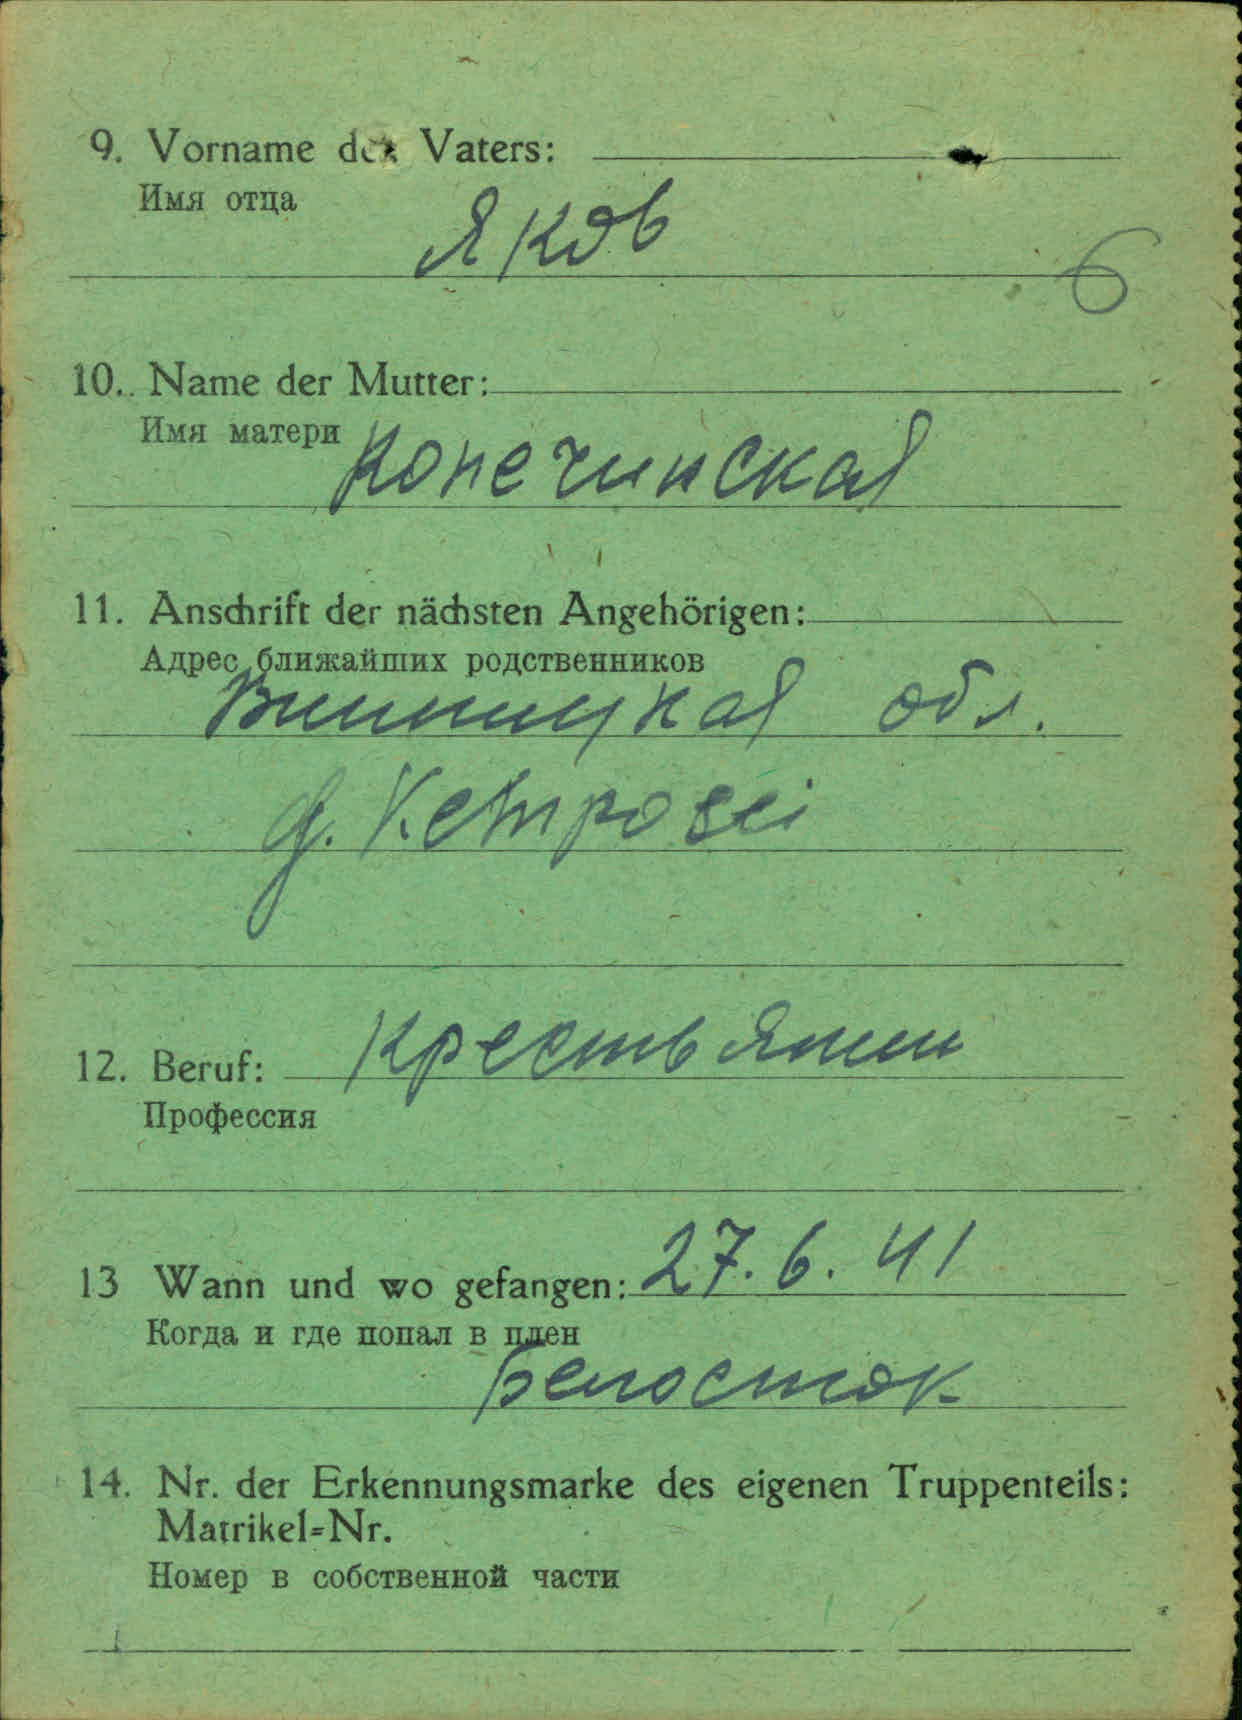 9. Vorname des Vaters:
Имя отца
Яков
6
10. Name der Mutter:
Имя матери
Конечинская
11. Anschrift der nächsten Angehörigen:
Адрес ближайших родственников
Винницкая обл.
д.
12. Beruf: Крестьянин
Профессия
13 Wann und wo gefangen: 27.6.41
Когда и где попал в плен
Белосток
14. Nr. der Erkennungsmarke des eigenen Truppenteils:
Matrikel=Nr.
Номер в собственной части